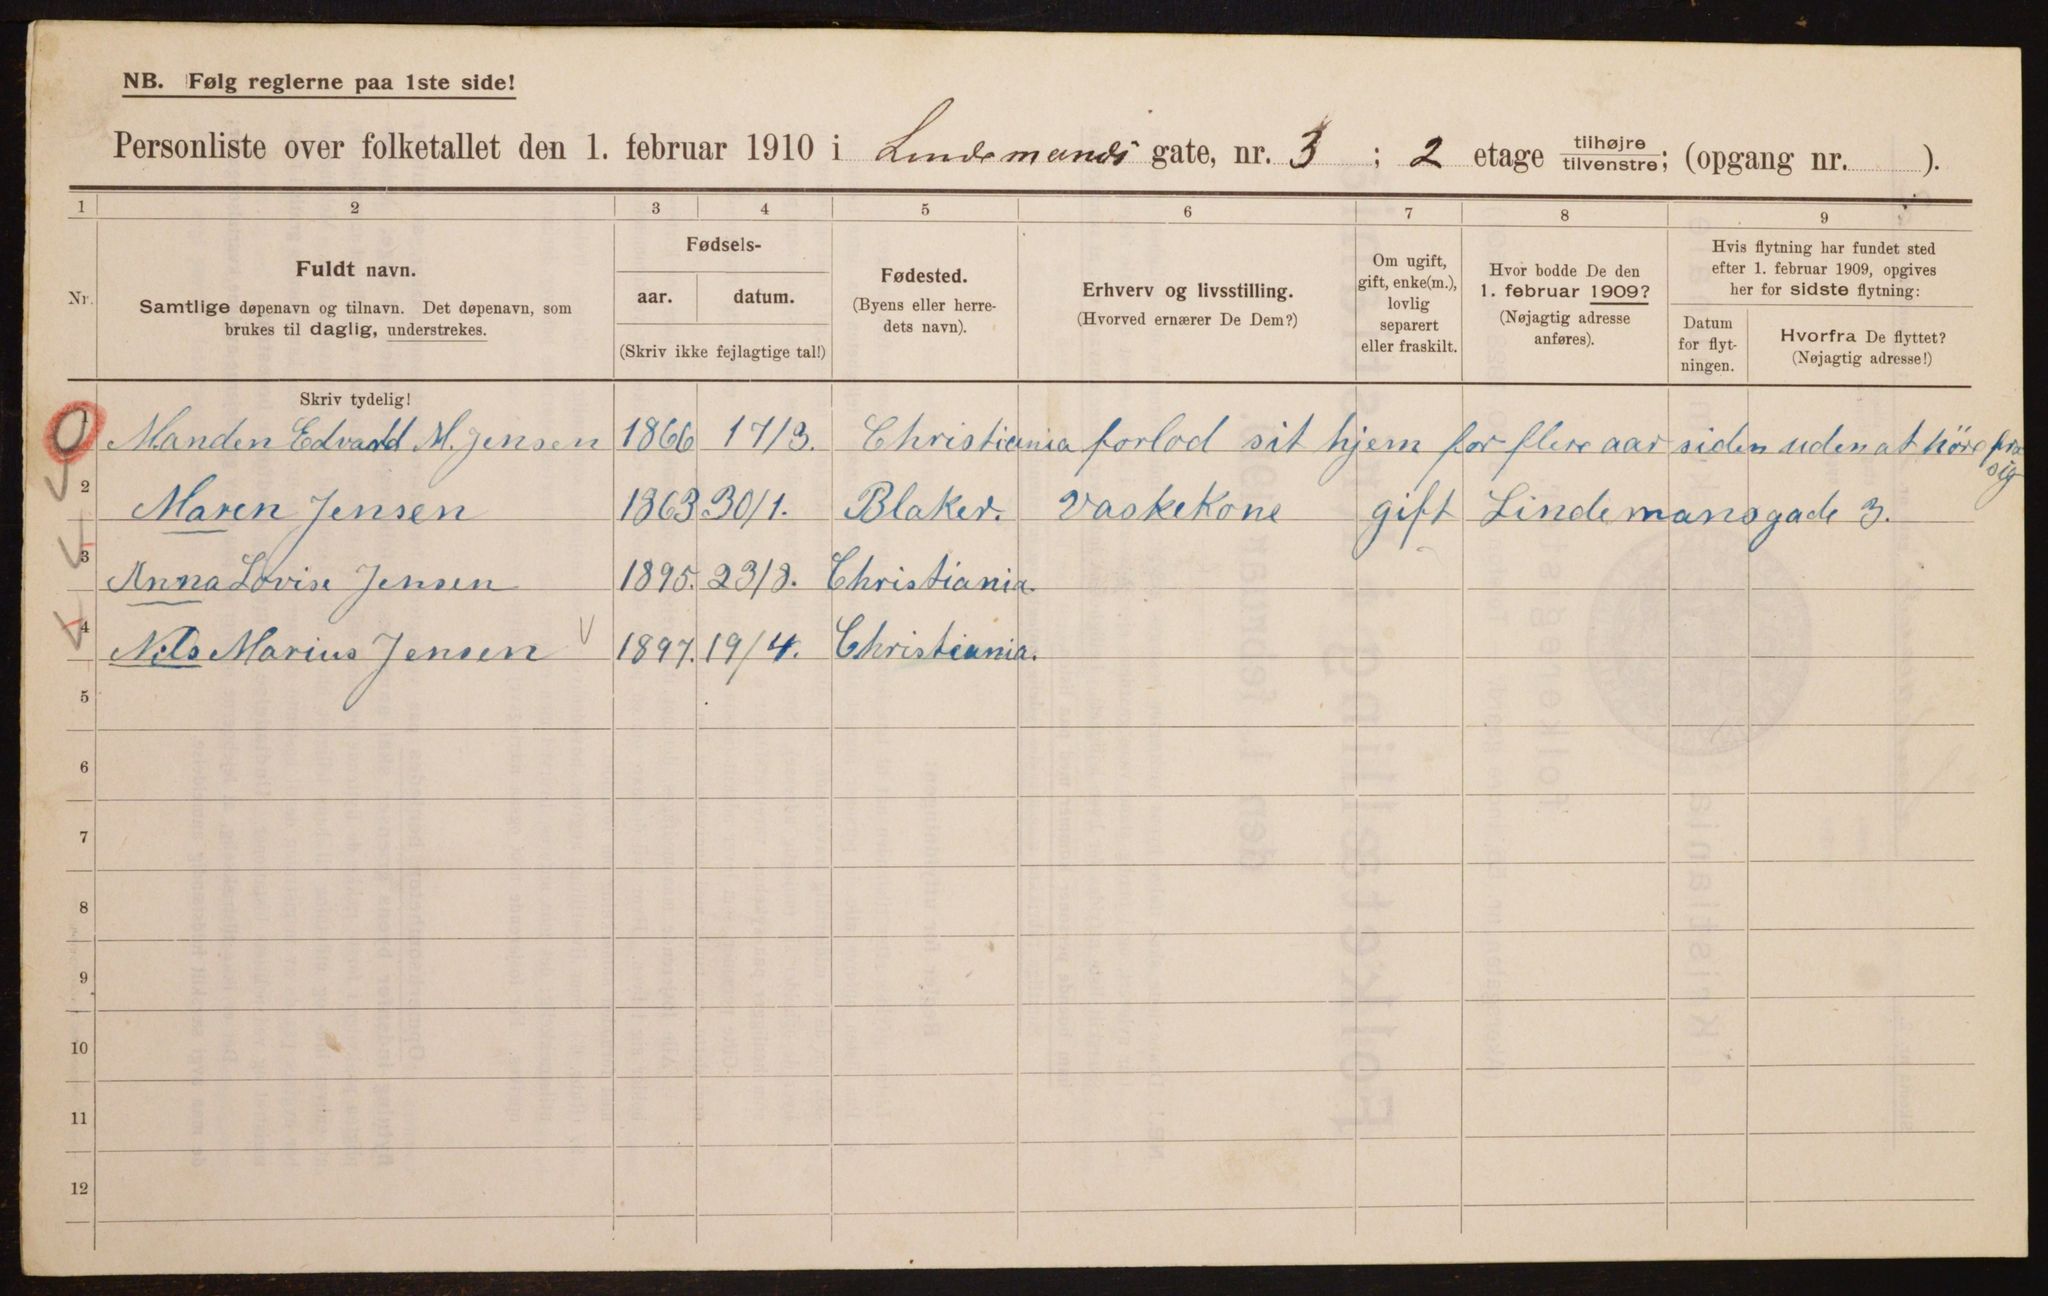 NB. Følg reglerne paa 1ste side!
Personliste over folketallet den 1. februar 1910 i Lindemands gate, nr. 3 ; 2 etage tilhøjre/tilvenstre; (opgang nr. ).
1 2 3 4 5 6 7 8 9
Nr.
Fuldt navn.
Samtlige døpenavn og tilnavn. Det døpenavn, som
brukes til daglig, understrekes.
Fødsels-
aar. datum.
(Skriv ikke fejlagtige tal!)
Fødested.
(Byens eller herre-
dets navn).
Erhverv og livsstilling.
(Hvorved ernærer De Dem?)
Om ugift,
gift, enke(m.),
lovlig
separert
eller fraskilt.
Hvor bodde De den
1. februar 1909?
(Nøjagtig adresse
anføres).
Hvis flytning har fundet sted
efter 1. februar 1909, opgives
her for sidste flytning:
Datum
for flyt-
ningen.
Hvorfra De flyttet?
(Nøjagtig adresse!)
Skriv tydelig!
1 Manden Edvard M. Jensen 1866 17/3. Christiania forlod sit hjem for flere aar siden uden at höre fra
sig
2 Maren Jensen 1863 30/1. Blaker. Vaskekone gift Lindemansgade 3.
3 Anna Lovise Jensen 1895. 23/8. Christiania.
4 Nils Marius Jensen 1897. 19/4. Christiania.
5
6
7
8
9
10
11
12